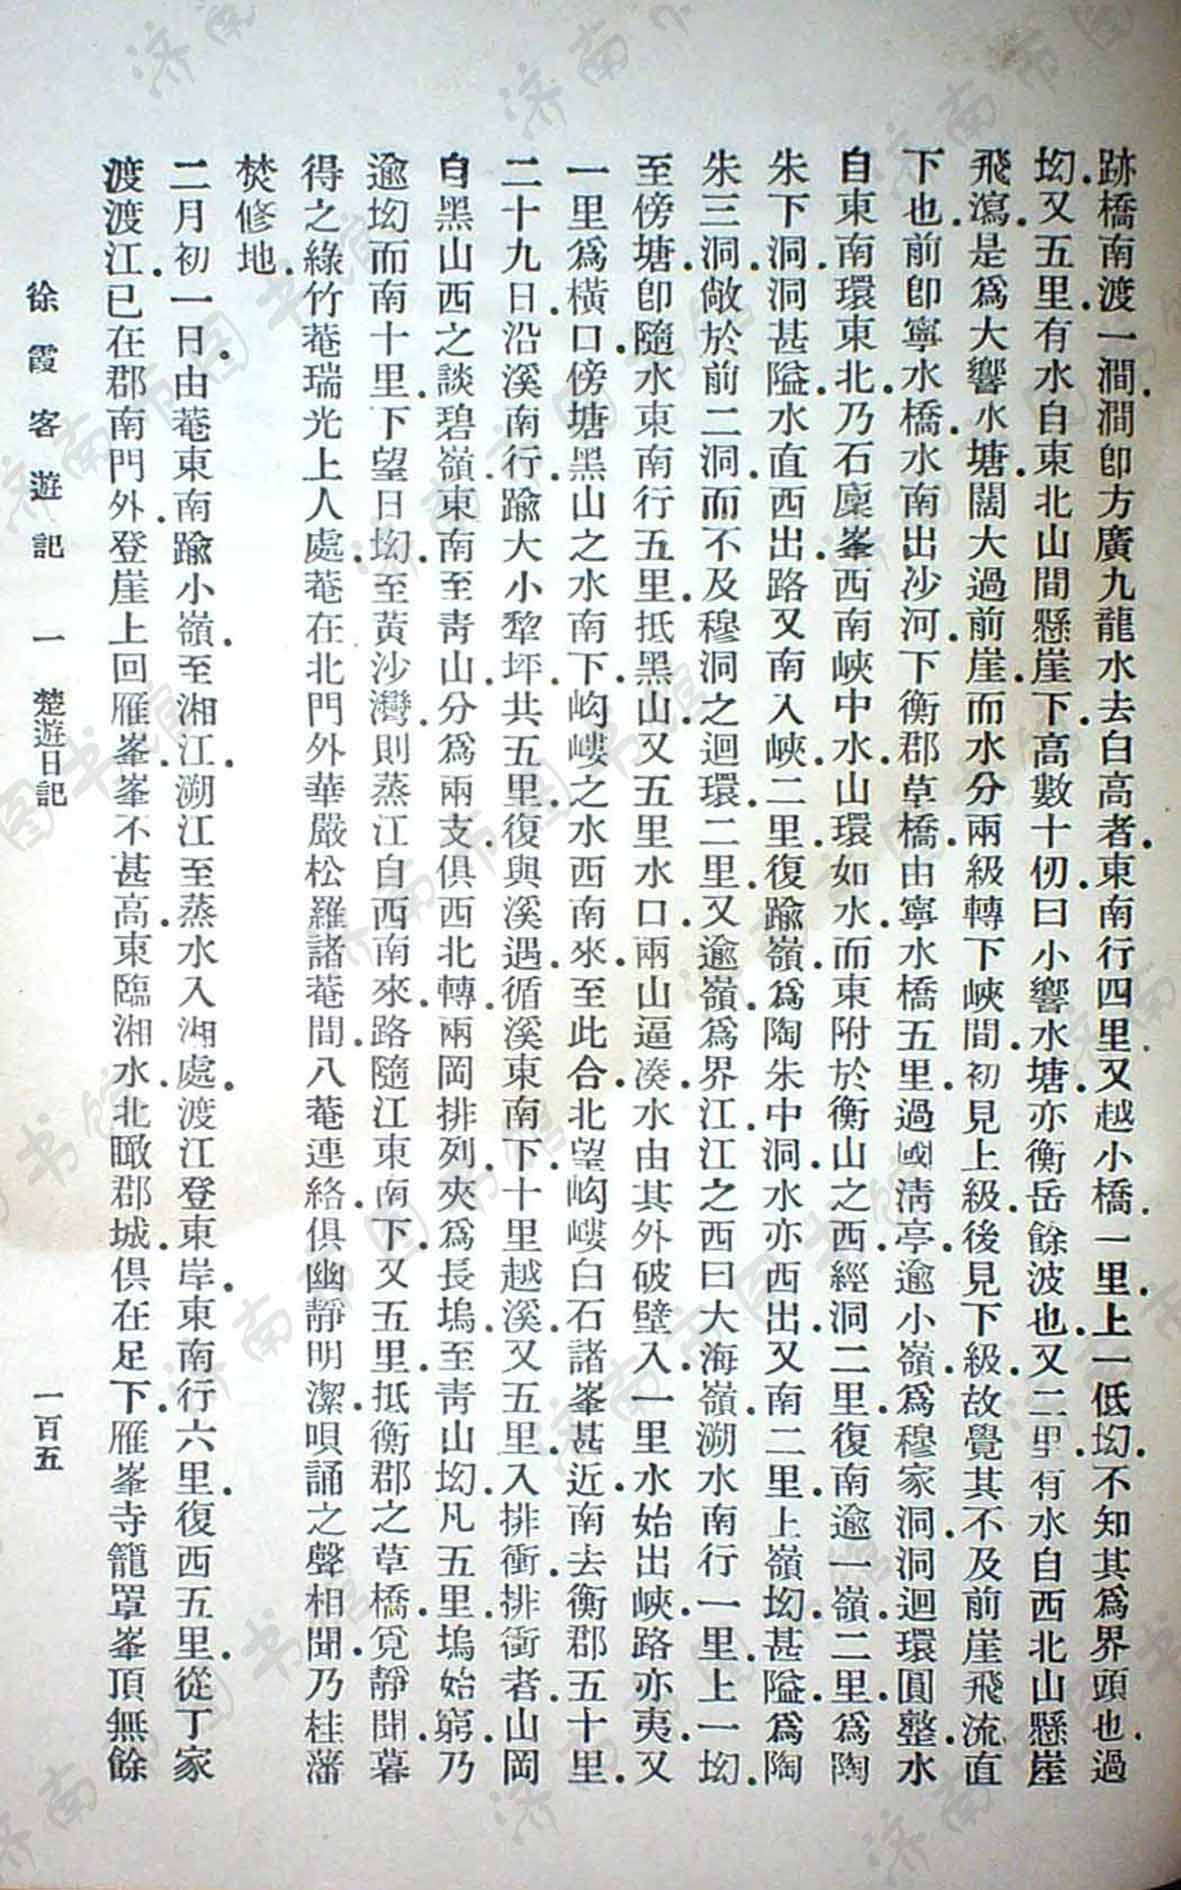 跡橋南渡一澗.澗卽方廣九龍水去白高者.東南行四里.又越小橋.一里.上一低坳.不知其爲界頭也.過
坳.又五里.有水自東北山間懸崖下.高數十仞.曰小響水塘.亦衡岳餘波也.又二里.有水自西北山懸崖
飛瀉.是爲大響水塘.闊大過前崖.而水分兩級轉下峽間.初見上級.後見下級.故覺其不及前崖飛流直
下也.前卽寧水橋.水南出沙河.下衡郡草橋.由寧水橋五里.過國淸亭.逾小嶺.爲穆家洞.洞迴環圓整.水
自東南環東北.乃石廩峯西南峽中水.山環如水.而東附於衡山之西.經洞二里.復南逾一嶺.二里.爲陶
朱下洞.洞甚隘.水直西出.路又南入峽.二里.復踰嶺.爲陶朱中洞.水亦西出.又南二里.上嶺坳.甚隘.爲陶
朱三洞.洞敞於前二洞.而不及穆洞之迴環.二里.又逾嶺.爲界江.江之西曰大海嶺.溯水南行一里.上一坳.
至傍塘.卽隨水東南行.五里.抵黑山.又五里.水口.兩山逼凑.水由其外破壁入.一里.水始出峽.路亦夷.又
一里.爲橫口.傍塘黑山之水南下.岣嶁之水西南來.至此合.北望岣嶁白石諸峯甚近.南去衡郡五十里.
二十九日.沿溪南行.踰大小犂坪.共五里.復與溪遇.循溪東南下.十里越溪.又五里.入排衝.排衝者.山岡
自黑山西之談碧嶺.東南至靑山.分爲兩支.俱西北轉.兩岡排列.夾爲長塢.至靑山坳.凡五里.塢始窮.乃
逾坳而南.十里.下望日坳.至黃沙灣.則蒸江自西南來.路隨江東南下.又五里.抵衡郡之草橋.覓靜聞.暮
得之綠竹菴瑞光上人處.菴在北門外華嚴松羅諸菴間.八菴連絡.俱幽靜明潔.唄誦之聲相聞.乃桂藩
焚修地.
二月初一日.由菴東南踰小嶺.至湘江.溯江至蒸水入湘處.渡江登東岸.東南行六里.復西五里.從丁家
渡渡江.已在郡南門外.登崖上回雁峯.峯不甚高.東臨湘水.北瞰郡城.俱在足下.雁峯寺籠罩峯頂無餘
徐霞客遊記 一 楚遊日記 一百五
济南市图书馆